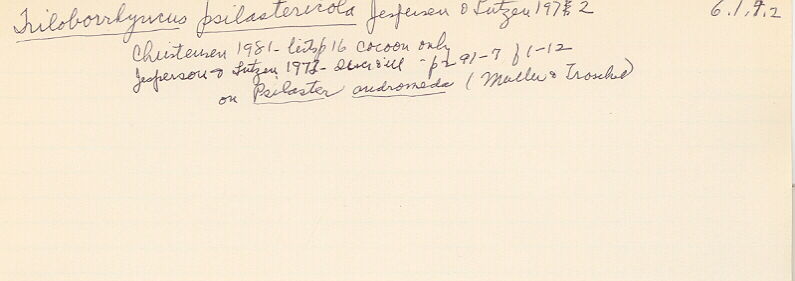 Triloborrhyncus psilastericola Jespersen & Lutzen 1972 6.1.9.2
Christensen 1981 - lists p 16 cocoon only
Jesperson & Lutzen 1972 - descr & ill - p 91-7 f 1-12
on Psilaster andromeda (Muller & Troschel)